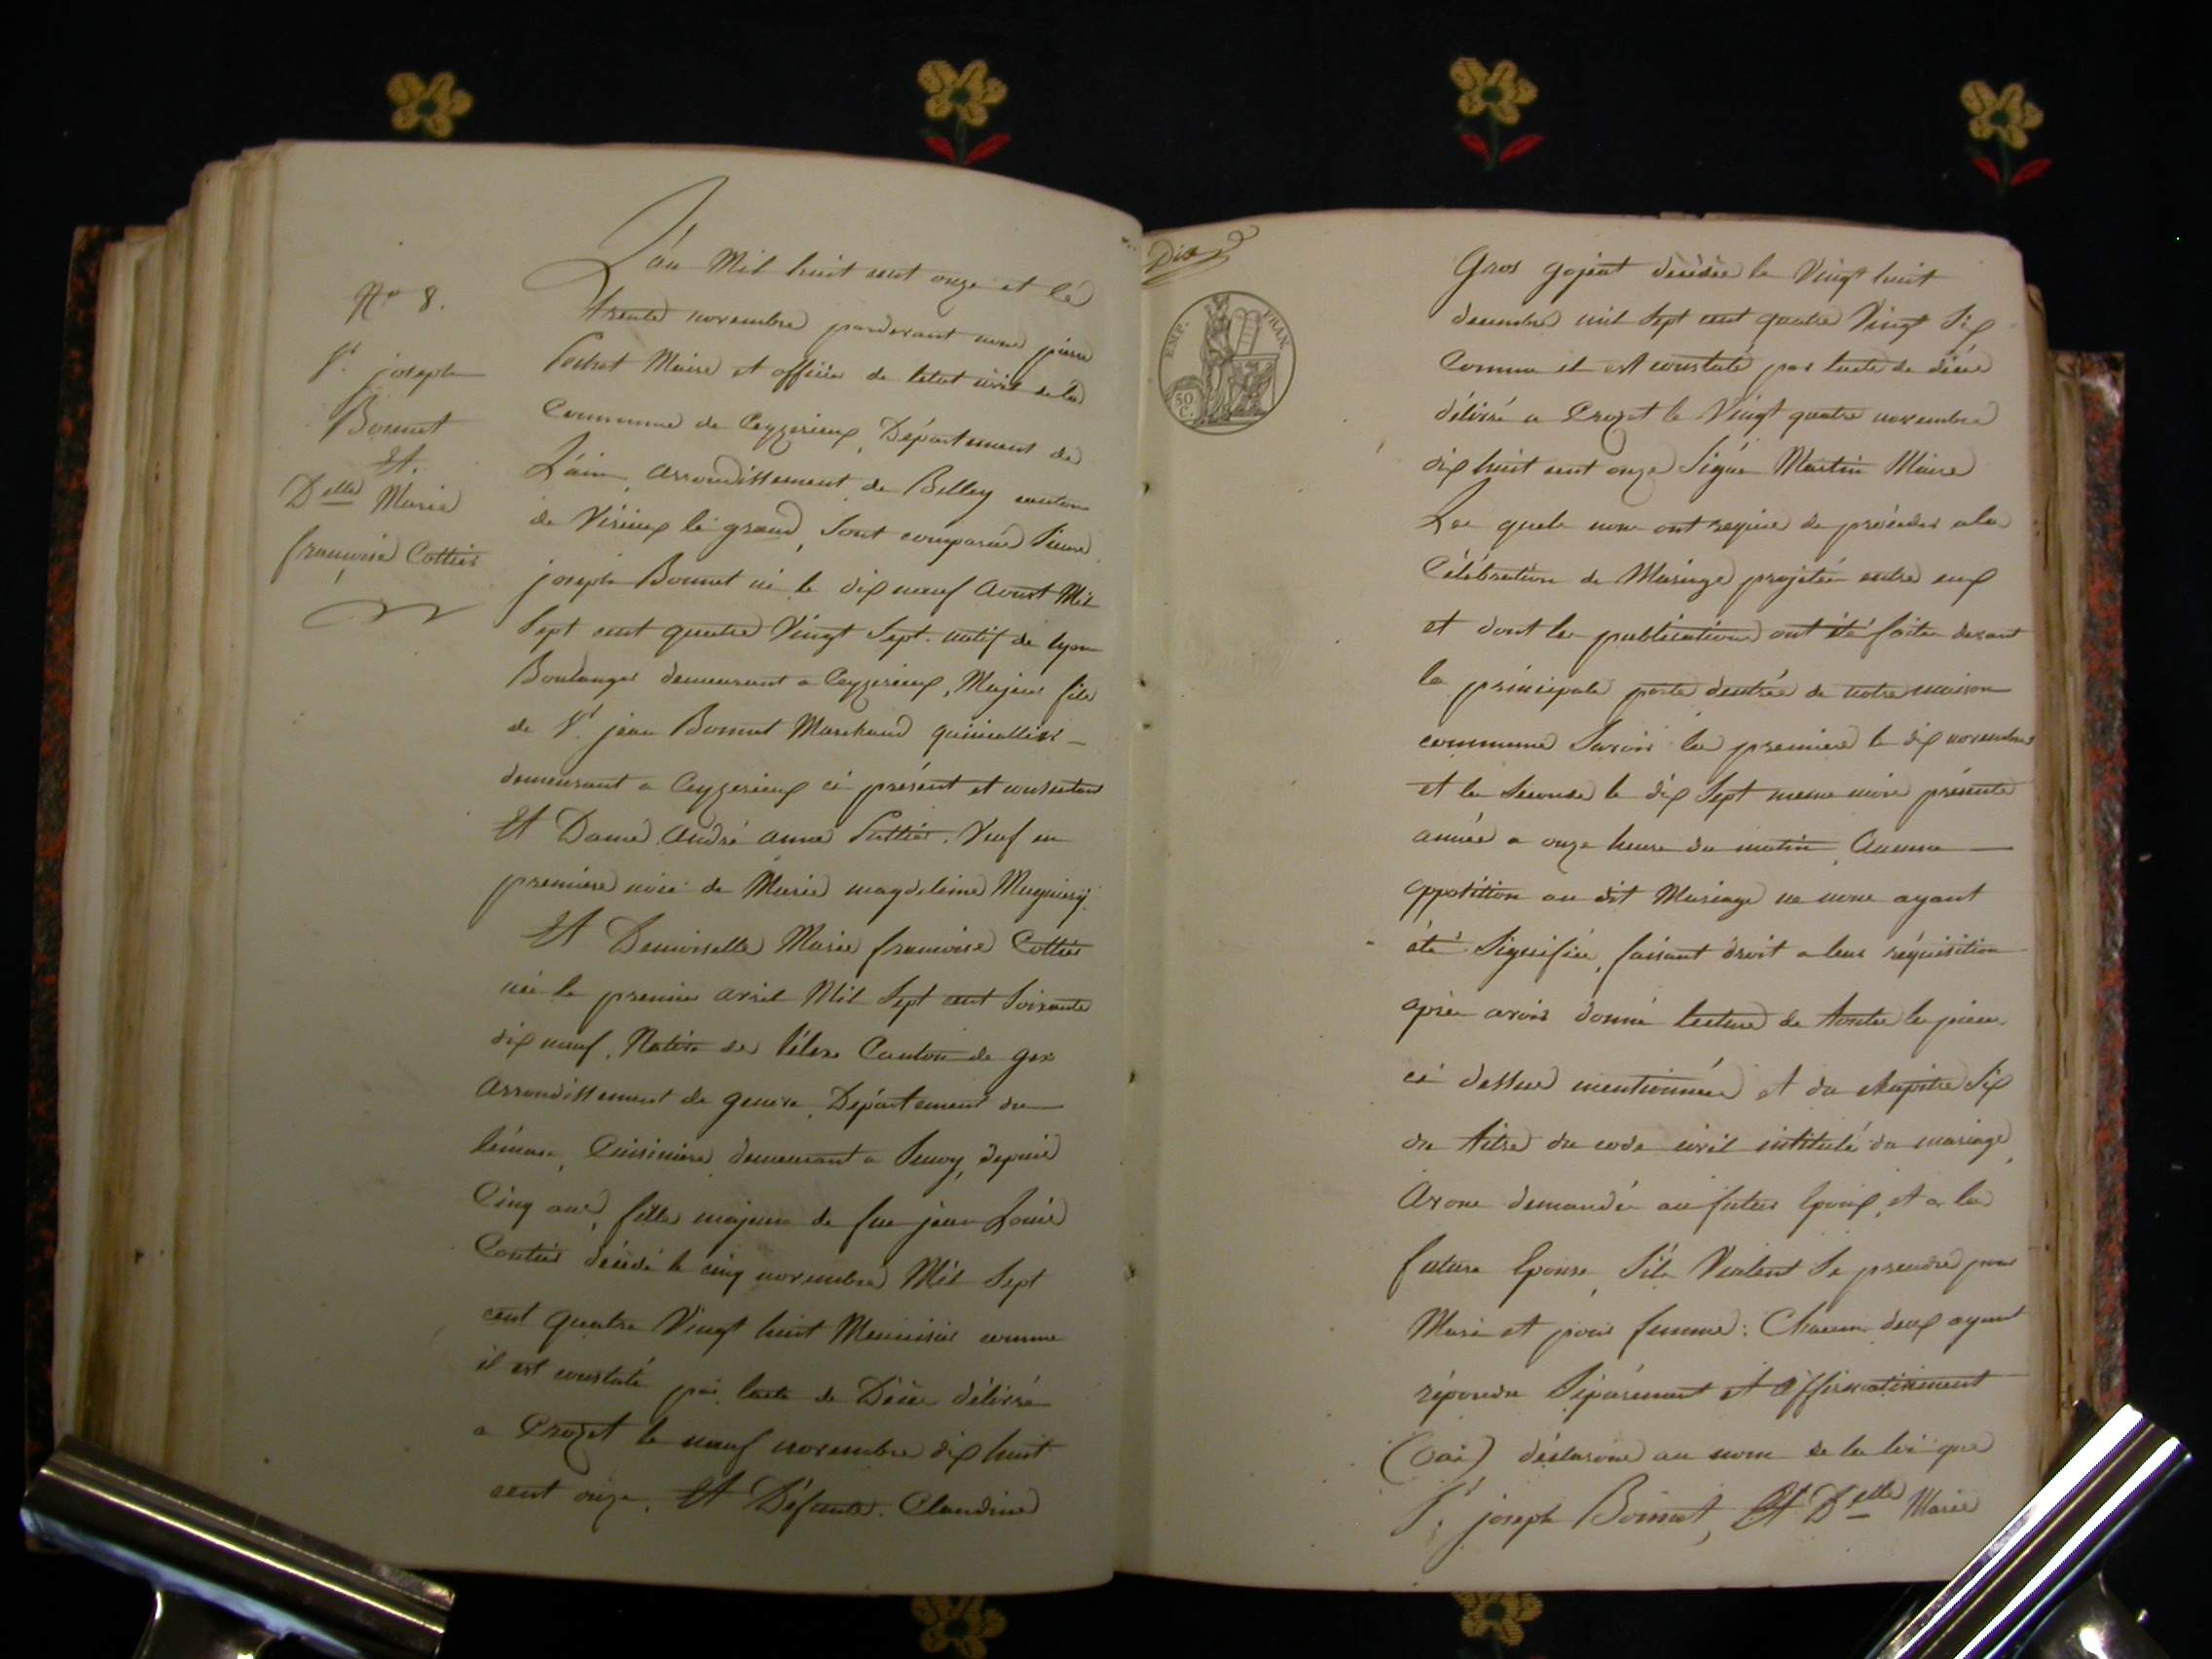 N° 8.
Sr. joseph
Bonnet
Et.
Delle Marie
francoise Cottier
L'an Mil huit cent onze et le
trente novembre pardevant nous pierre
Pochet Maire et officier de letat civil de la
Commune de Ceyzerieux, Département de
L'ain, arrondissement de Belley canton
de Virieux le grand, Sont comparus Sieur
joseph Bonnet né le dix neuf Aoust Mil
Sept cent quatre Vingt Sept. natif de lyon
Boulanger demeurant a Ceyzerieux, Majeur fils
de Sr. jean Bonnet Marchand quincallier
demeurant a Ceyzerieux ci présent et consentant
Et Dame André anne. Veuf en
premiere noce de Marie magdeleine
Et Demoiselle Marie francoise Cottier
née le premier avril Mil Sept cent Soixante
dix neuf, Native de lélex Canton de gex
Arrondissement de geneve, Département du
léman, Cuisiniere demeurant a, depuis
Cinq ans, fille majeure de feu jean Louis
Contier décédé le cinq novembre Mil Sept
cent quatre Vingt huit Menuisier comme
il est constaté par lacte de Décès délivré
a Crozet le neuf novembre dix huit
cent onze. Et Défunte. Claudine
Dix
EMP. FRAN.
50 C.
Gros gojeat décédée le Vingt huit
decembre mil Sept cent quatre Vingt Six
Comme il est constaté par lacte de décés
délivré a Crozet le Vingt quatre novembre
dix huit cent onze Signé Martin Maire
Les quels nous ont requis de procéder a la
Célébration du Mariage projetée entre eux
et dont les publications ont été faites devant
la principale porte dentrée de notre maison
commune Savoir la premiere le dix novembre
et la Seconde le dix Sept meme mois présente
année a onze heures du matin, Aucune
opposition au dit Mariage ne nous ayant
été Signifiée, faisant droit a leur réquisition
après avoir donné lecture de toutes les pieces
ci dessus mentionnées et du chapitre Six
du titre du code civil intitulé du mariage,
Avons demandé au futur Epoux, et a la
future Epouse, S'ils Veulent Se prendre pour
Mari et pour femme: Chacun deux ayant
répondu Séparément et Affirmativement
(Oui) déclarons au nom de la loi que
Sr. joseph Bonnet, Et Delle Marie